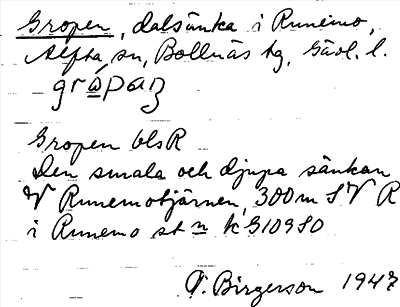 Gropen, dalsänka i Runemo,
Alfta sn, Bollnäs tg, Gävl. l.
Gropen bls R
Den smala och djupa sänkan
V Runemotjärnen, 300 m SV R
i Runemo st n k G109 SO
T. Birgerson 1947